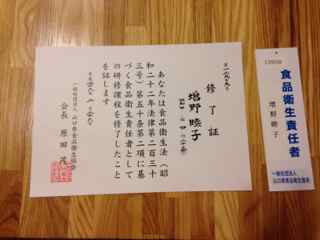 修了証
増野 暁子
あなたは食品衛生法(昭
和二十二年法律第二百三十
三号)第五十条第二項に基
づく食品衛生責任者として
の研修課程を修了したこと
を証します
一般社団法人 山口県食品衛生協会
会長 原田 茂
食品衛生責任者
増野 暁子
一般社団法人
山口県食品衛生協会